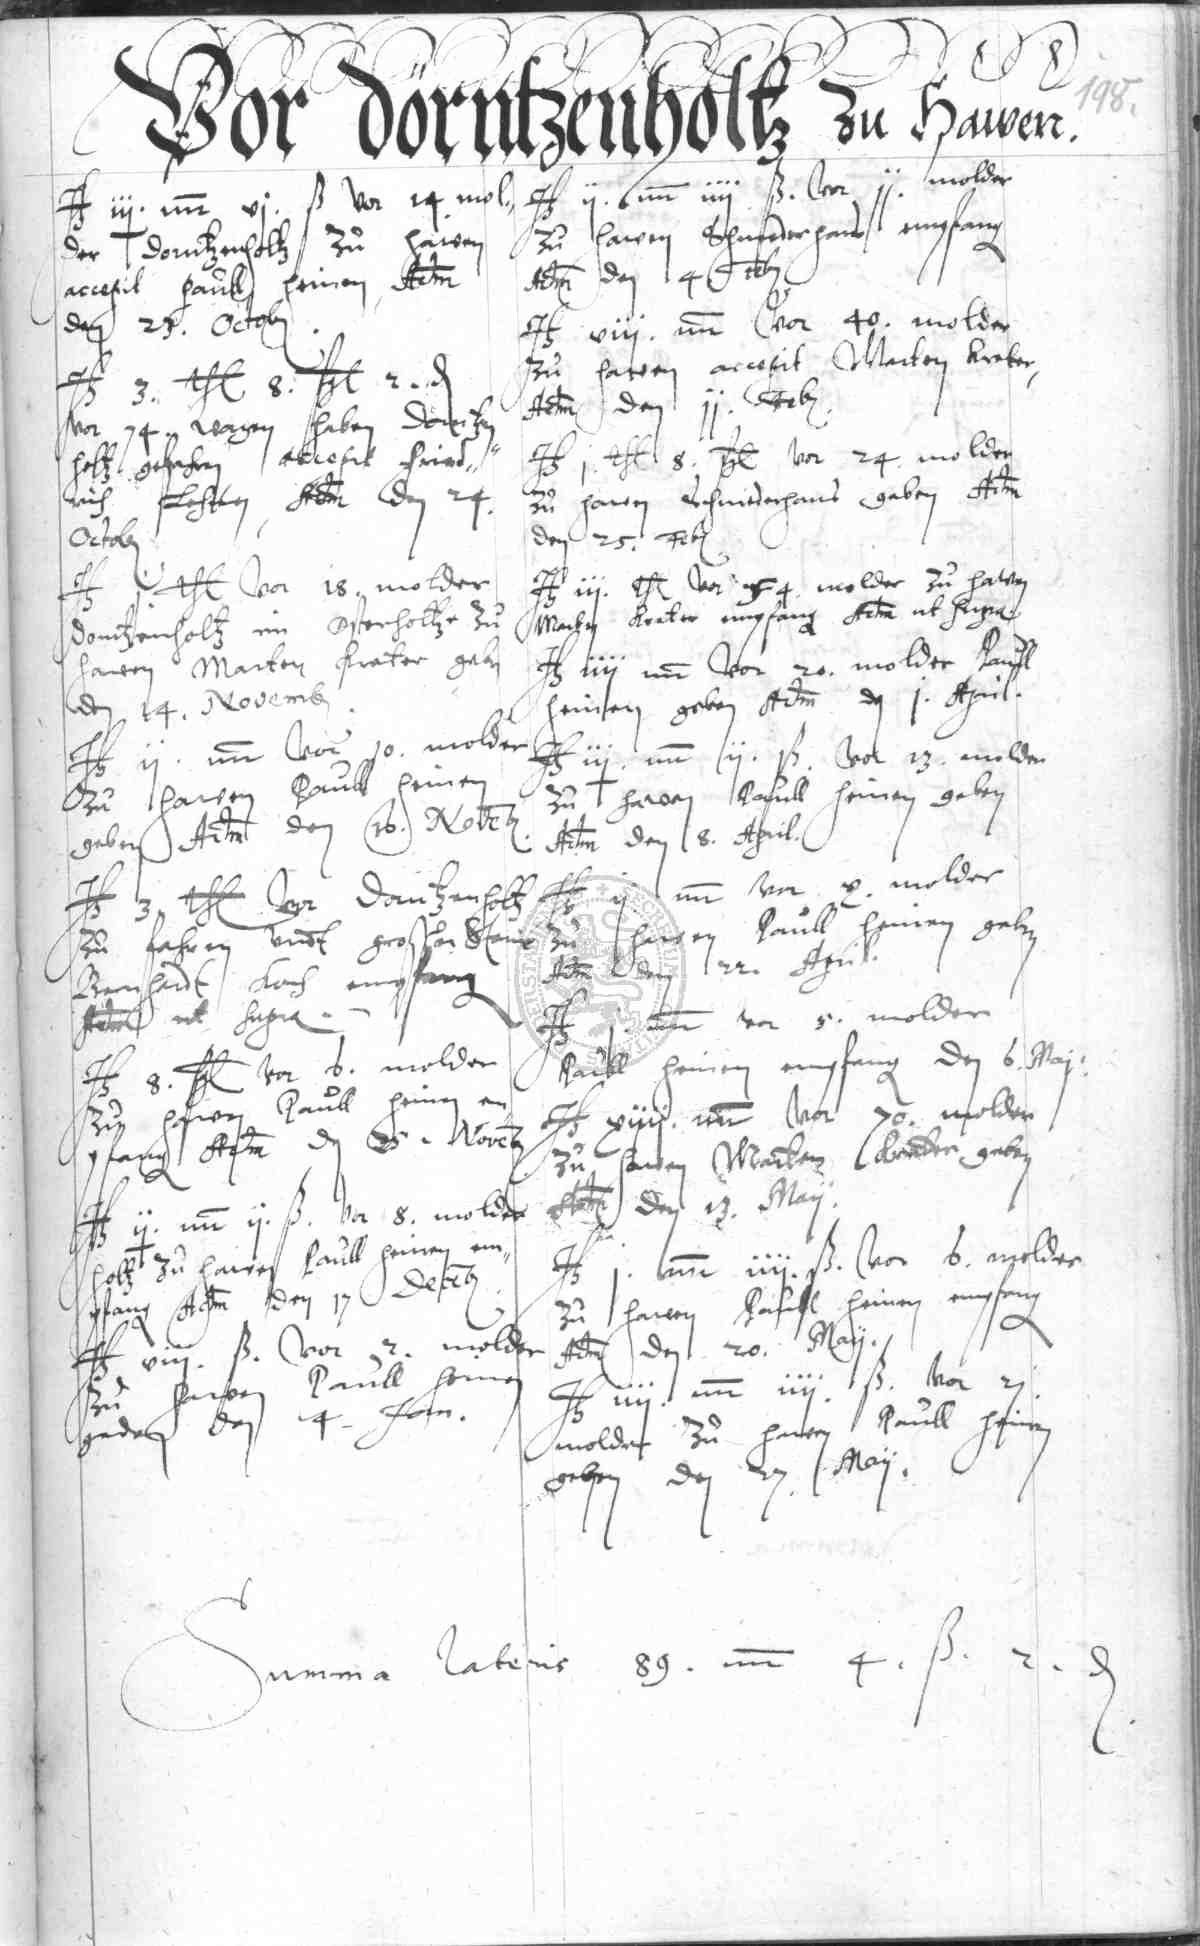 198.
Vor dörntzenholtz zu Hawen.
It iij. mr vj. ß vor 14. mol„
der dorntzenholtz zu hawen
accepit Paull heinen, Actm
den 21. Octob
It 3. thl 8. fgl 2. ₰
vor 74. wagen haben dorntzen
holtz gefahren accepit Fried„
rich, Actm den 24.
Octob
It j thl vor 18. molder
dorntzenholtz im Osterholtze zu
hawen Marten Kreter geben
den 14. Novemb.
It ij. mr vor 10. molder
zu hawen Paull heinen
geben Actm den 16. Novēb.
It 3. thl vor dorntzenholtz
zu fahren undt grosser Steine
Bernhardt Koch empfang
Actm ut supra.
It 8. fgl vor 6. molder
zu hawen Paull heinen em
pfang Actm den 25. Novēb
It ij. mr ij. ß. vor 8. molder
holtz zu hawen Paull heinen em„
pfang Actm den 17 Decēb
It viij. ß. vor 2. molder
zu hawen Paull heinen
geben den 4. Jan.
It ij. mr iiij ß. vor jj. molder
zu hawen Schniderhans empfang
Actm den 4 Feb
It viij. mr vor 40. molder
zu hawen accepit Marten Kreter,
Actm den jj. Feb.
It j. thl 8. fgl vor 24. molder
zu hawen Schniderhans geben Actm
den 25. Feb
It iij. thl vor 54. molder zu hawen
Marten Kreter empfang Actm ut supra.
It iiij mr vor 20. molder Paull
heinen geben Actm den j. April.
It iij. mr ij. ß. vor 13. molder
zu hawen Paull heinen geben
Actm den 8. April.
It ij mr vor x. molder
zu hawen Paull heinen geben
Actm den 22. April.
It j. mr vor 5. molder
Paull heinen empfang den 6. Maij.
It xiiij. mr vor 70. molder
zu hawen Marten Kreter geben
Actm den 13. Maij.
It j. mr iiij. ß. vor 6. molder
zu hawen Paull heinen empfang
Actm den 20. Maij.
It iiij. mr iiij. ß. vor 21.
molder zu hawen Paull heinen
geben den 27. Maij.
Summa lateris 89. mr 4. ß. 2. ₰